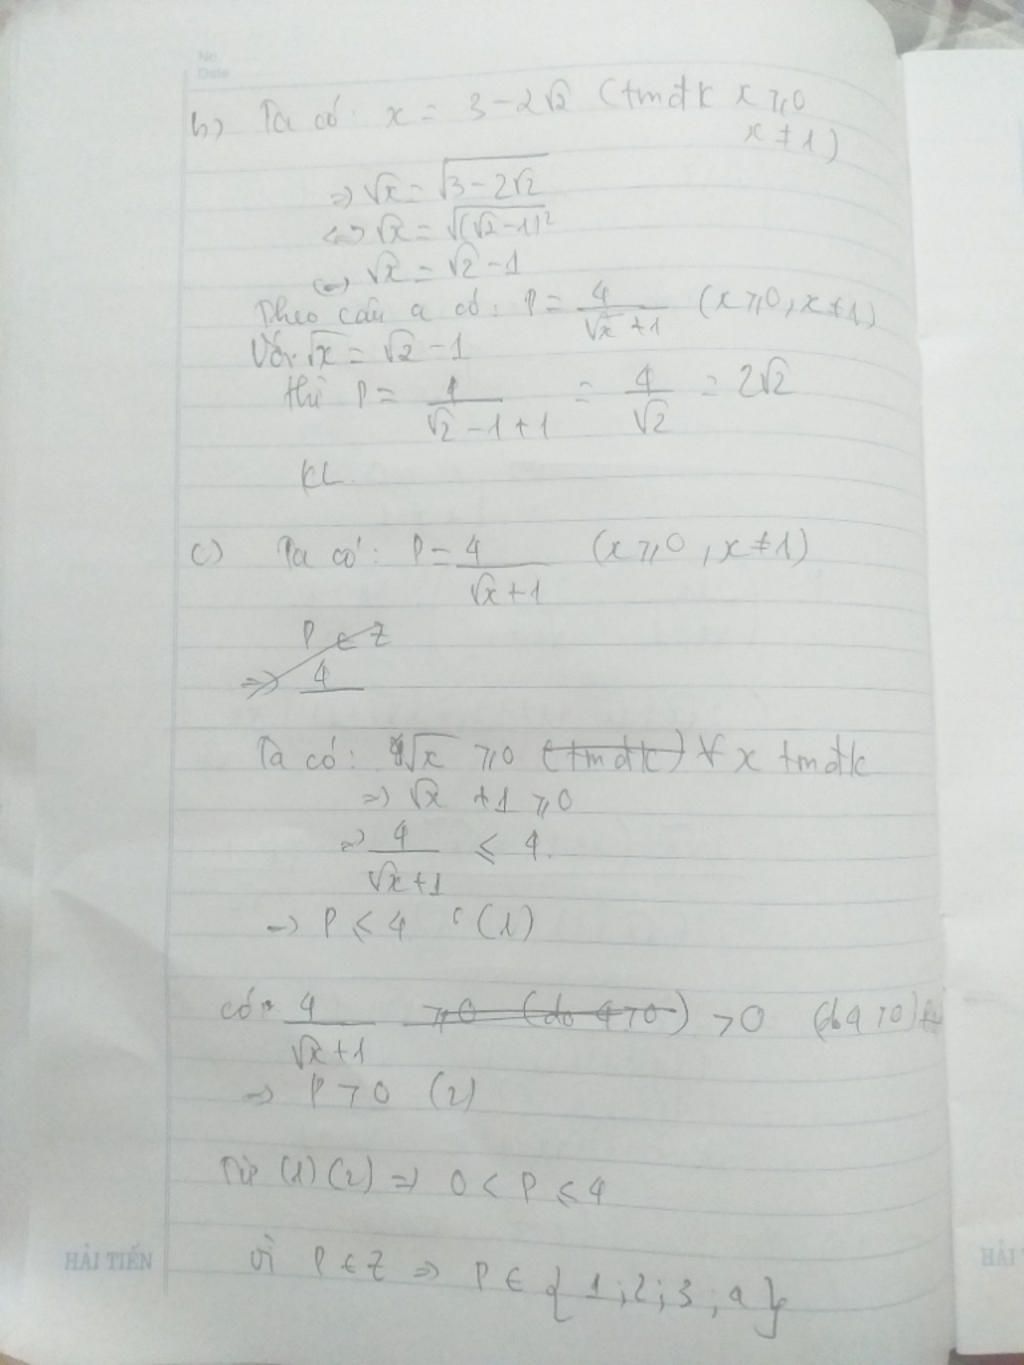 No.
Date
b) Ta có: x = 3 - 2√2 (tmđk x ⩾ 0
x ≠ 1)
=> √x = √(3 - 2√2)
<=> √x = √((√2 - 1)²)
<=> √x = √2 - 1
Theo câu a có: P = 4/(√x + 1) (x ⩾ 0, x ≠ 1)
Với √x = √2 - 1
thì P = 4/(√2 - 1 + 1) = 4/√2 = 2√2
KL.
c) Ta có: P = 4/(√x + 1) (x ⩾ 0, x ≠ 1)
P ∈ Z
=> 4
Ta có: √x ⩾ 0 (tmđk) ∀ x tmđk
=> √x + 1 ⩾ 0
=> 4/(√x + 1) ⩽ 4.
=> P ⩽ 4 (1)
có: 4/(√x + 1) ⩾ 0 (do 4 > 0) > 0 (do 4 > 0)
=> P > 0 (2)
Từ (1) (2) => 0 < P ⩽ 4
vì P ∈ Z => P ∈ { 1 ; 2 ; 3 ; 4 }
HẢI TIẾN
HẢI